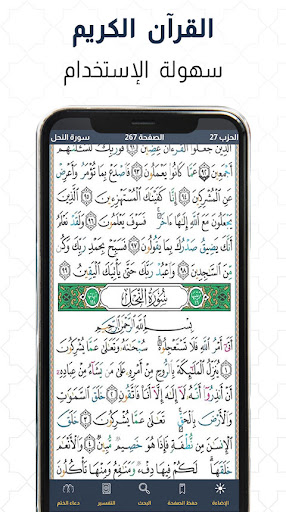 القرآن الكريم
سهولة الإستخدام
الحزب 27
الصفحة 267
سورة النحل
ٱلَّذِينَ جَعَلُوا۟ ٱلْقُرْءَانَ عِضِينَ ٩١ فَوَرَبِّكَ لَنَسْـَٔلَنَّهُمْ
أَجْمَعِينَ ٩٢ عَمَّا كَانُوا۟ يَعْمَلُونَ ٩٣ فَٱصْدَعْ بِمَا تُؤْمَرُ وَأَعْرِضْ
عَنِ ٱلْمُشْرِكِينَ ٩٤ إِنَّا كَفَيْنَٰكَ ٱلْمُسْتَهْزِءِينَ ٩٥ ٱلَّذِينَ
يَجْعَلُونَ مَعَ ٱللَّهِ إِلَٰهًا ءَاخَرَ فَسَوْفَ يَعْلَمُونَ ٩٦ وَلَقَدْ نَعْلَمُ
أَنَّكَ يَضِيقُ صَدْرُكَ بِمَا يَقُولُونَ ٩٧ فَسَبِّحْ بِحَمْدِ رَبِّكَ وَكُن
مِّنَ ٱلسَّٰجِدِينَ ٩٨ وَٱعْبُدْ رَبَّكَ حَتَّىٰ يَأْتِيَكَ ٱلْيَقِينُ ٩٩
سُورَةُ النَّحْلِ
بِسْمِ ٱللَّهِ ٱلرَّحْمَٰنِ ٱلرَّحِيمِ
أَتَىٰٓ أَمْرُ ٱللَّهِ فَلَا تَسْتَعْجِلُوهُ سُبْحَٰنَهُۥ وَتَعَٰلَىٰ عَمَّا يُشْرِكُونَ
١ يُنَزِّلُ ٱلْمَلَٰٓئِكَةَ بِٱلرُّوحِ مِنْ أَمْرِهِۦ عَلَىٰ مَن يَشَآءُ مِنْ عِبَادِهِۦٓ
أَنْ أَنذِرُوٓا۟ أَنَّهُۥ لَآ إِلَٰهَ إِلَّآ أَنَا۠ فَٱتَّقُونِ ٢ خَلَقَ ٱلسَّمَٰوَٰتِ
وَٱلْأَرْضَ بِٱلْحَقِّ تَعَٰلَىٰ عَمَّا يُشْرِكُونَ ٣ خَلَقَ
ٱلْإِنسَٰنَ مِن نُّطْفَةٍ فَإِذَا هُوَ خَصِيمٌ مُّبِينٌ ٤ وَٱلْأَنْعَٰمَ
خَلَقَهَا لَكُمْ فِيهَا دِفْءٌ وَمَنَٰفِعُ وَمِنْهَا تَأْكُلُونَ
الإضاءة
حفظ الصفحة
البحث
التفسير
دعاء الختم